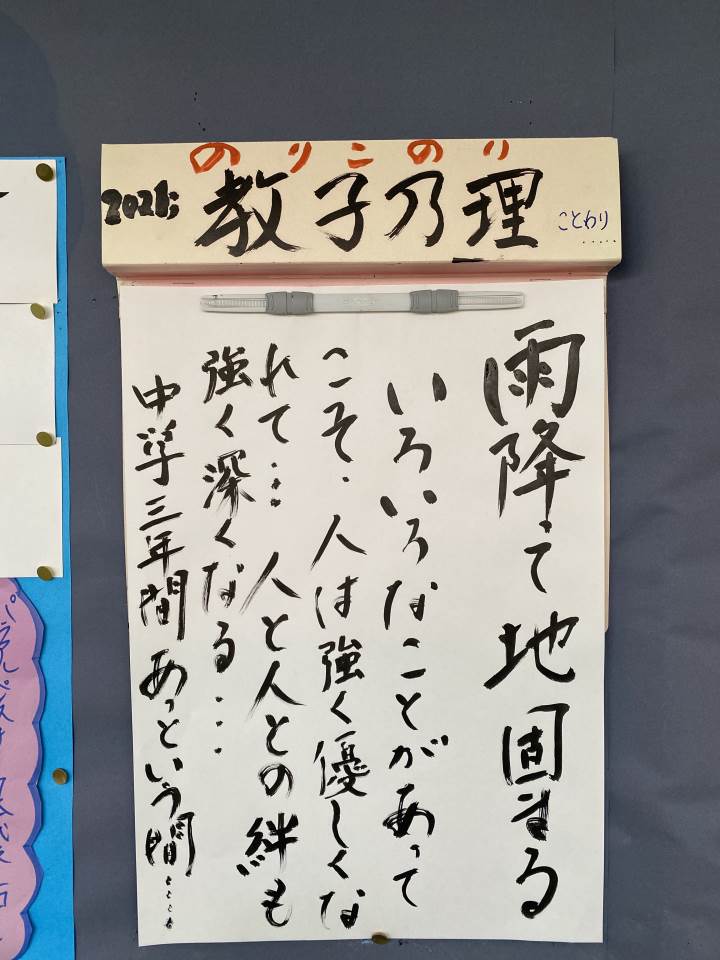 のりこのり
2021;
教子乃理
ことわり
.....
雨降って地固まる
いろいろなことがあって
こそ、人は強く優しくな
れて…人と人との絆も
強く深くなる…
中学三年間あっという間……